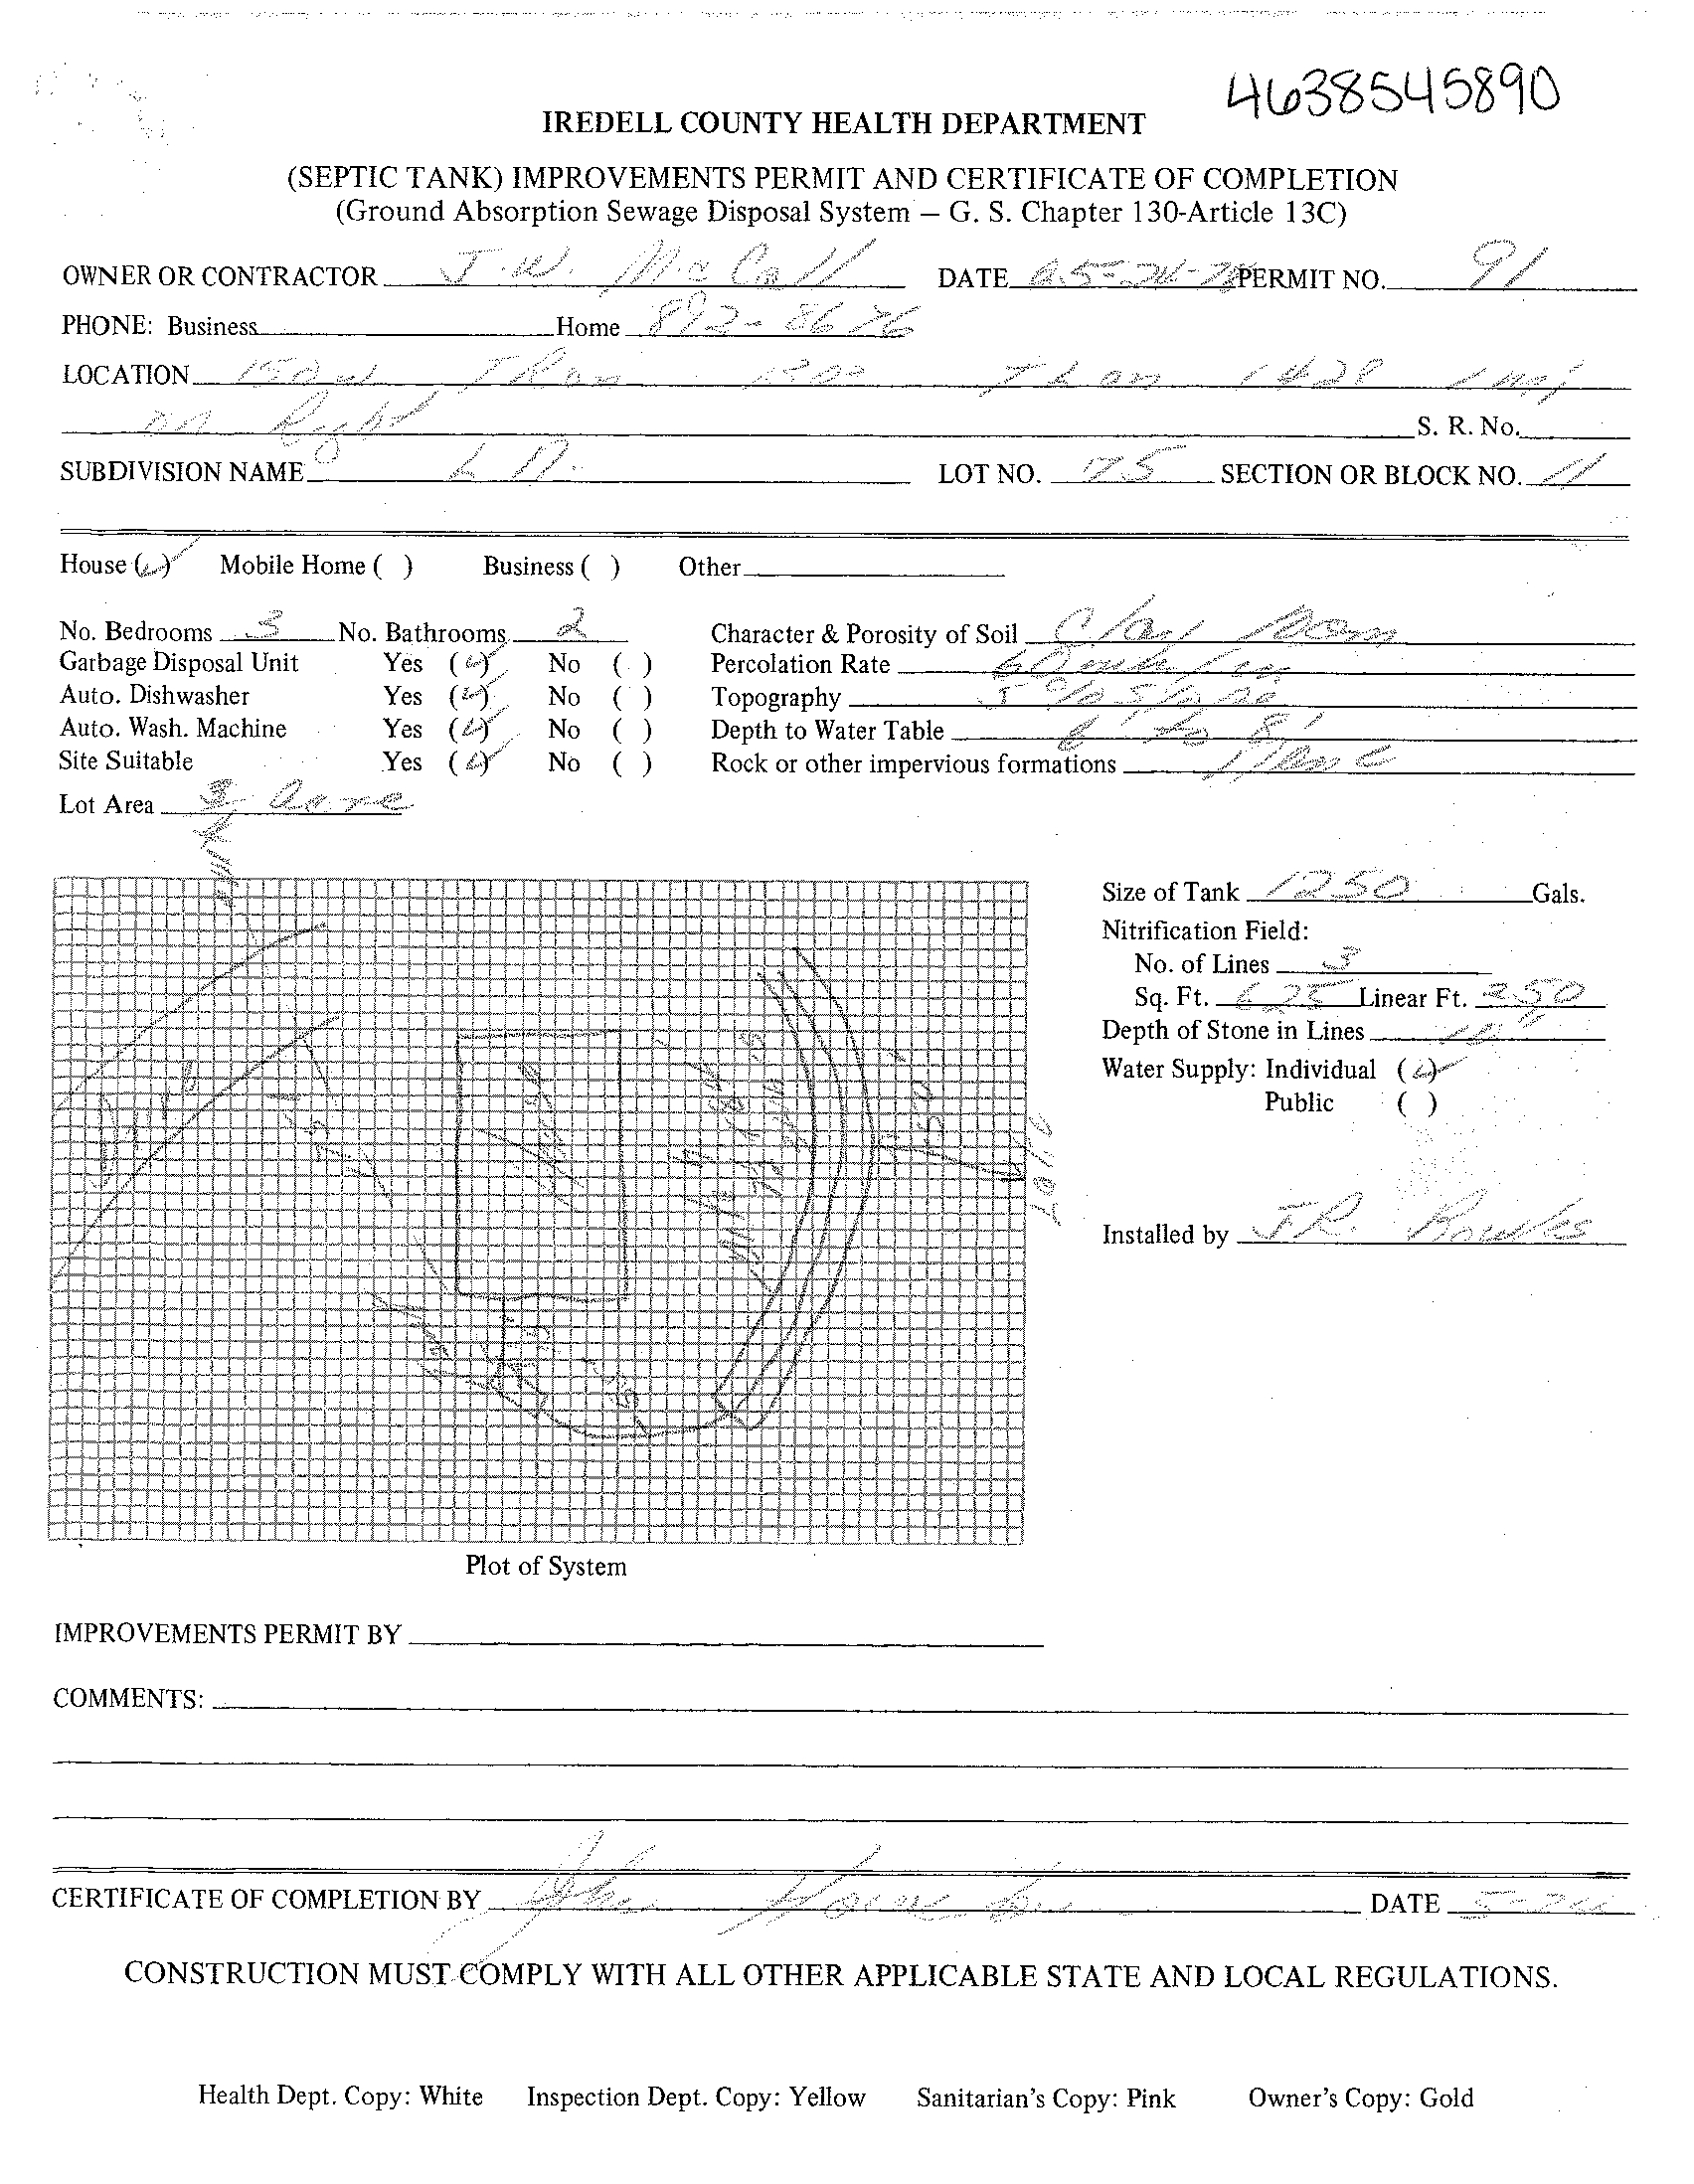 4638545890
IREDELL COUNTY HEALTH DEPARTMENT
(SEPTIC TANK) IMPROVEMENTS PERMIT AND CERTIFICATE OF COMPLETION
(Ground Absorption Sewage Disposal System – G. S. Chapter 130-Article 13C)
OWNER OR CONTRACTOR J.W. McCall DATE PERMIT NO. 91
PHONE: Business Home 892-8676
LOCATION 150 W Than Than 1428
on Right S. R. No.
SUBDIVISION NAME LOT NO. 75 SECTION OR BLOCK NO. 11
House (✓) Mobile Home ( ) Business ( ) Other
No. Bedrooms 3 No. Bathrooms 2 Character & Porosity of Soil Clay loam
Garbage Disposal Unit Yes (✓) No ( ) Percolation Rate 60 min/in
Auto. Dishwasher Yes (✓) No ( ) Topography 5% slope
Auto. Wash. Machine Yes (✓) No ( ) Depth to Water Table 6' to 8'
Site Suitable Yes (✓) No ( ) Rock or other impervious formations None
Lot Area acre
Size of Tank 1250 Gals.
Nitrification Field:
No. of Lines 3
Sq. Ft. 625 Linear Ft. 250
Depth of Stone in Lines
Water Supply: Individual (✓)
Public ( )
Installed by J.R.
Plot of System
IMPROVEMENTS PERMIT BY
COMMENTS:
CERTIFICATE OF COMPLETION BY John DATE
CONSTRUCTION MUST COMPLY WITH ALL OTHER APPLICABLE STATE AND LOCAL REGULATIONS.
Health Dept. Copy: White Inspection Dept. Copy: Yellow Sanitarian's Copy: Pink Owner's Copy: Gold